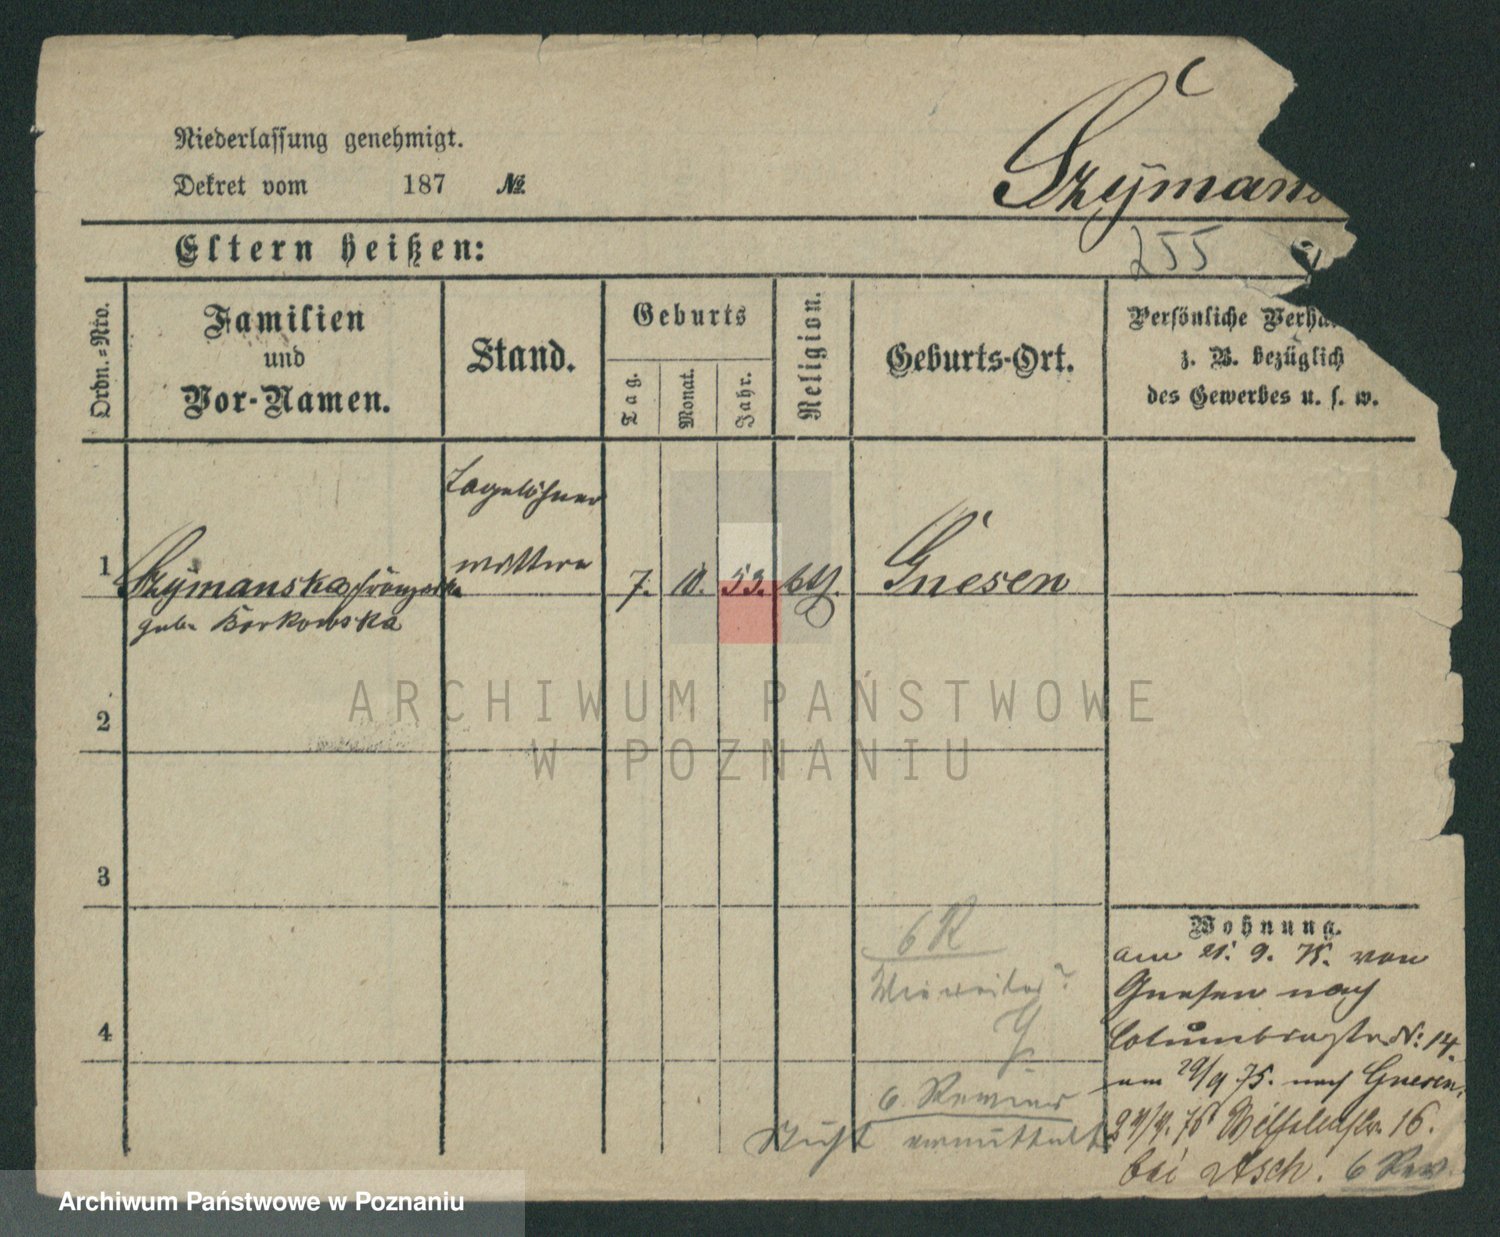 Niederlassung genehmigt.
Dekret vom 187 №
Szymans
255
Eltern heißen:
Ordn.=Nro.
Familien
und
Vor-Namen.
Stand.
Geburts
Tag.
Monat.
Jahr.
Religion.
Geburts-Ort.
Persönliche Verhä
z. B. bezüglich
des Gewerbes u. s. w.
Tagelöhner
wittwe
1 Szymanska Franziska 7. 10. 53. kth. Gnesen
geb. Borkowska
2
3
4
6 R
6. Revier
Nicht ermittelt
Wohnung.
am 21. 9. 75. von
Gnesen nach
Columbiastr. N: 14.
am 29/9 75. nach Gnesen.
Wilhelmstr. 16.
bei Asch. 6 Rev
ARCHIWUM PAŃSTWOWE
W POZNANIU
Archiwum Państwowe w Poznaniu